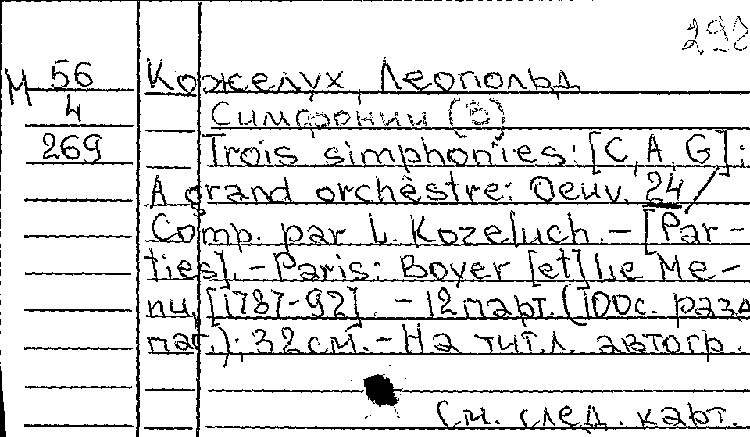 292
М 56 Кожелух, Леопольд
4 Симфонии (3)
269 Trois simphonies: [C, A, G]:
A grand orchèstre: Oeuv. 24
Comp. par L. Kozeluch. – [Par-
ties]. – Paris: Boyer [et] Le Me-
nu, [1787-92]. – 12 парт. (100с. разд.
паг.); 32 см. – На тит.л. автогр.
См. след. карт.